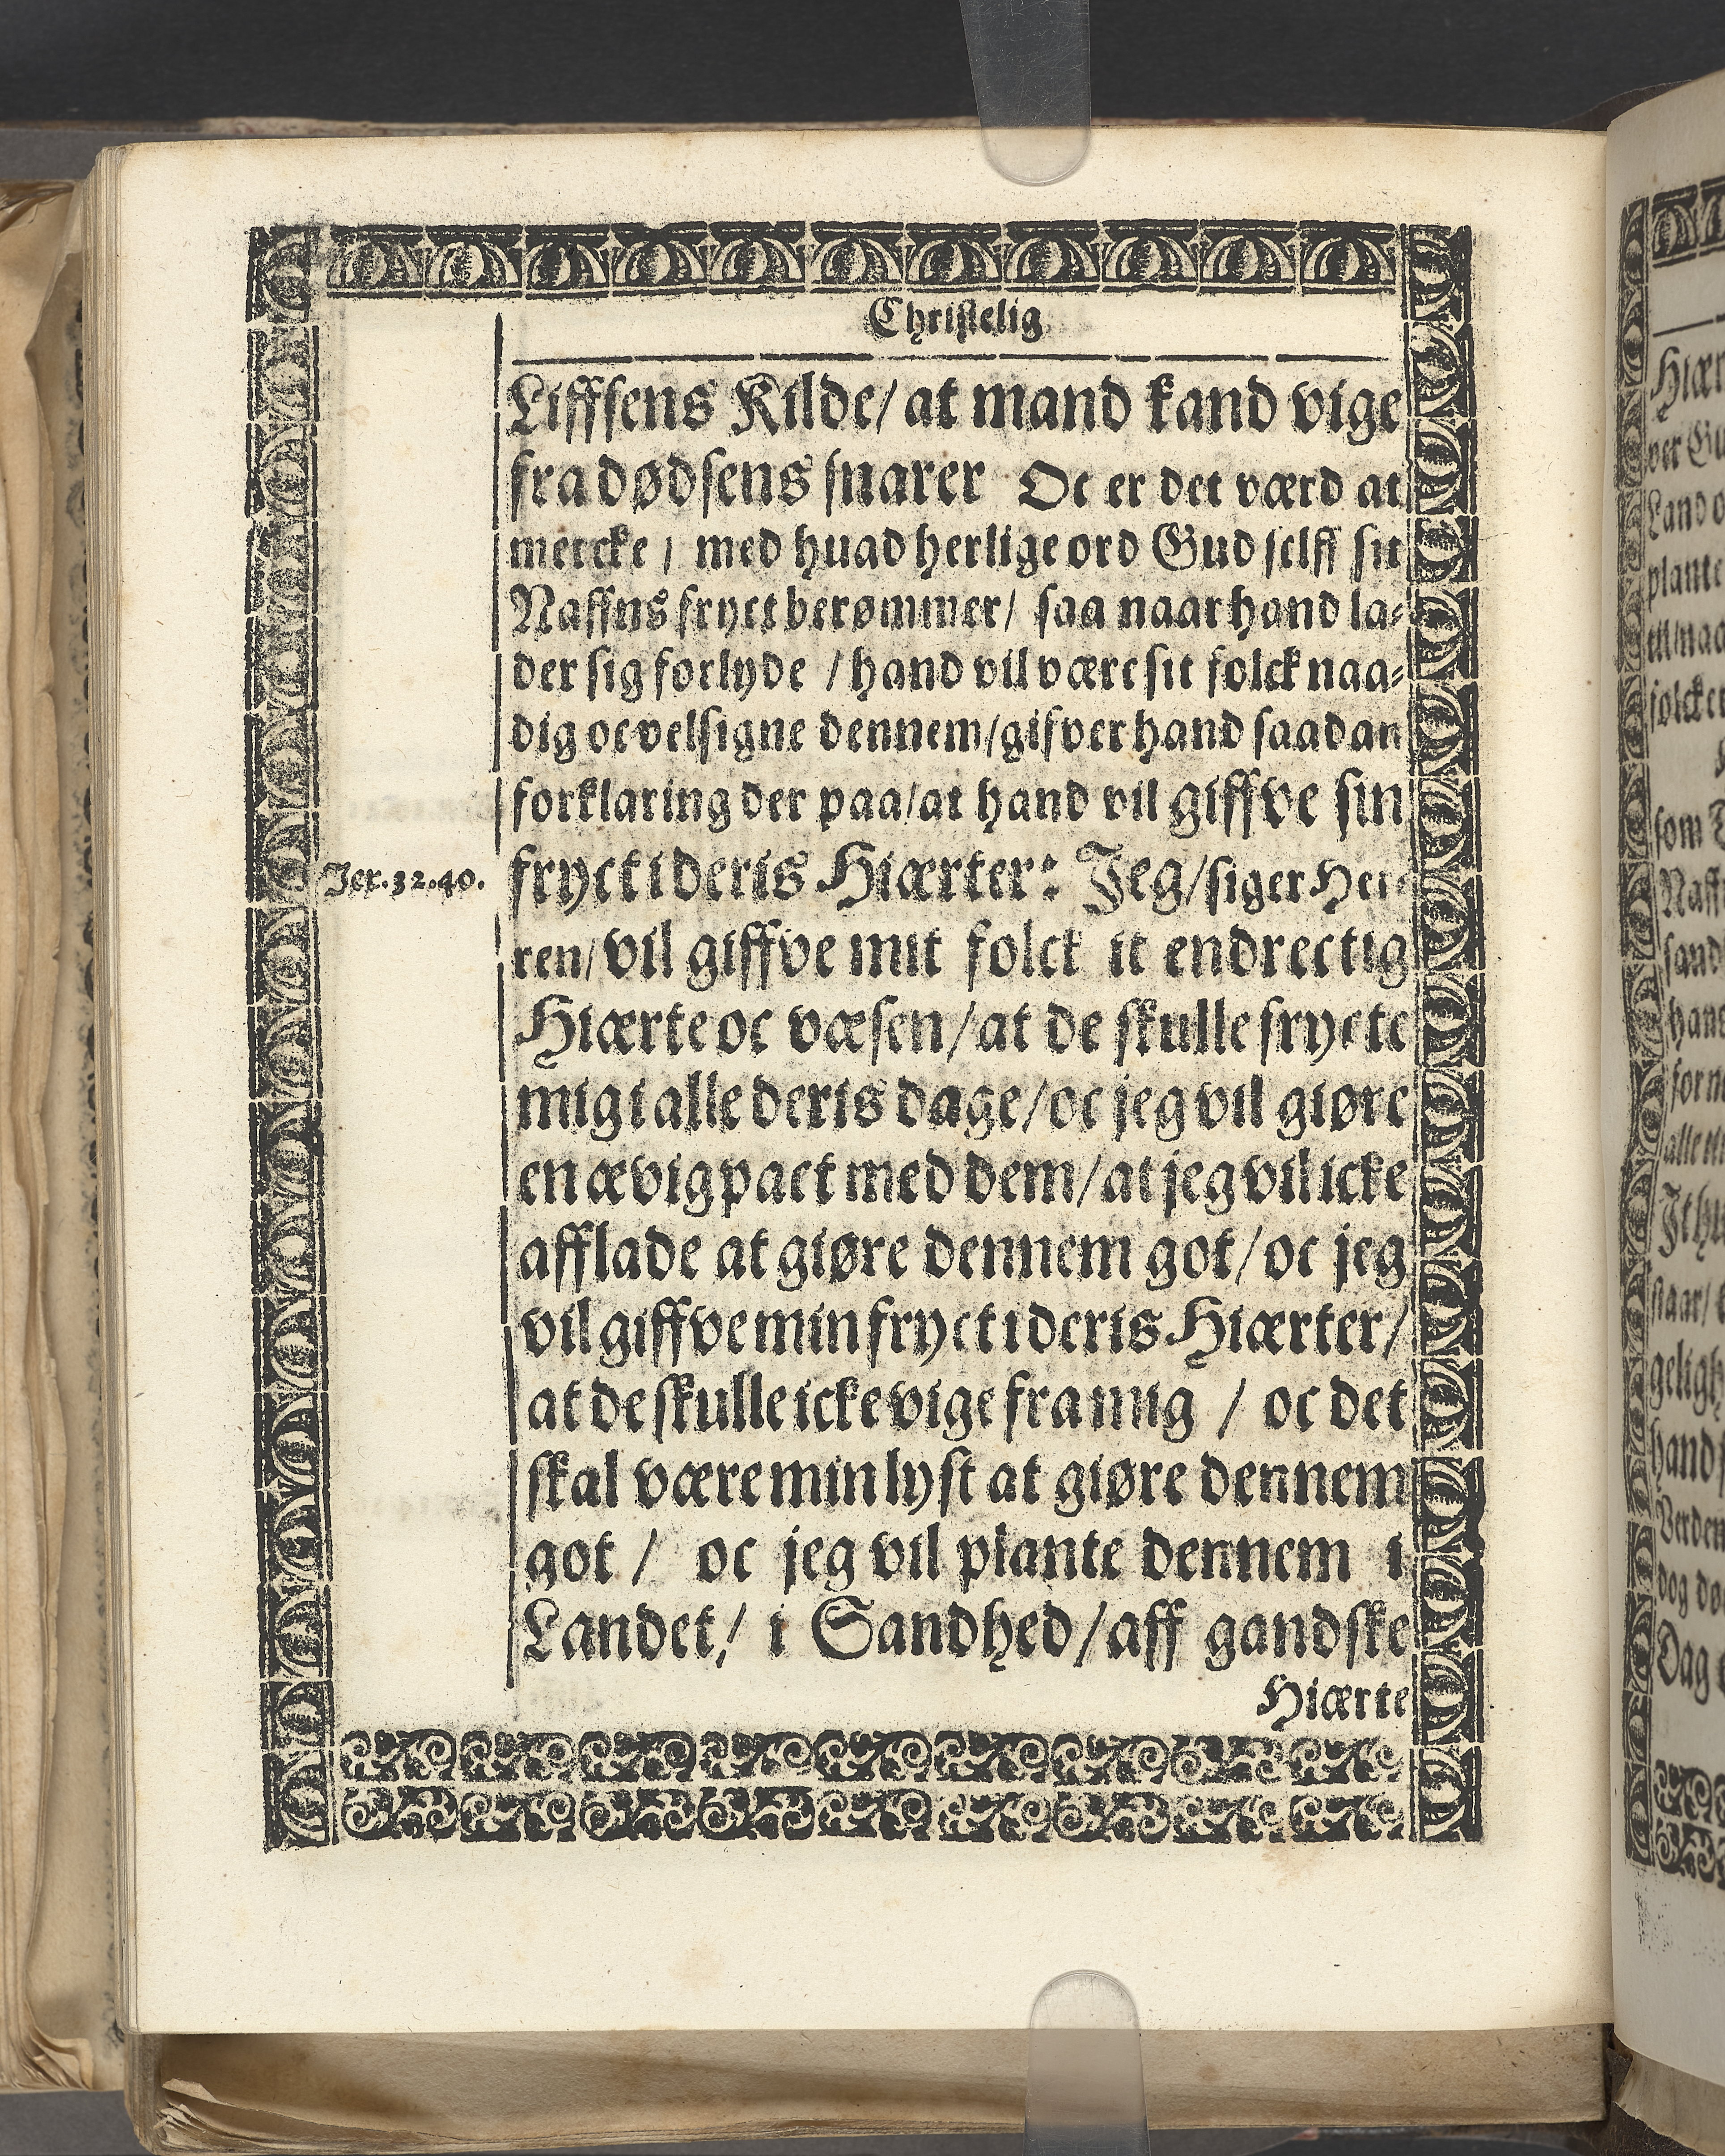 Christelig
Liffsens Kilde/ at mand kand vige
fra dødsens snarer Oc er det værd at
mercke / med huad herlige ord Gud selff sit
Naffns fryct berømmer/ saa naar hand la-
der sig forlyde / hand vil være sit folck naa-
dig oc velsigne dennem/gifver hand saadan
forklaring der paa/at hand vil giffve sin
Jer.32.40.
fryct i deris Hiærter: Jeg/siger Her-
ren/vil giffve mit folck it endrectig
Hiærte oc væsen/at de skulle frycte
mig i alle deris dage/oc jeg vil giøre
en ævig pact med dem/at jeg vil icke
afflade at giøre dennem got/oc jeg
vil giffve min fryct i deris Hiærter/
at de skulle icke vige fra mig / oc det
skal være min lyst at giøre dennem
got / oc jeg vil plante dennem i
Landet/ i Sandhed/aff gandske
Hiærte